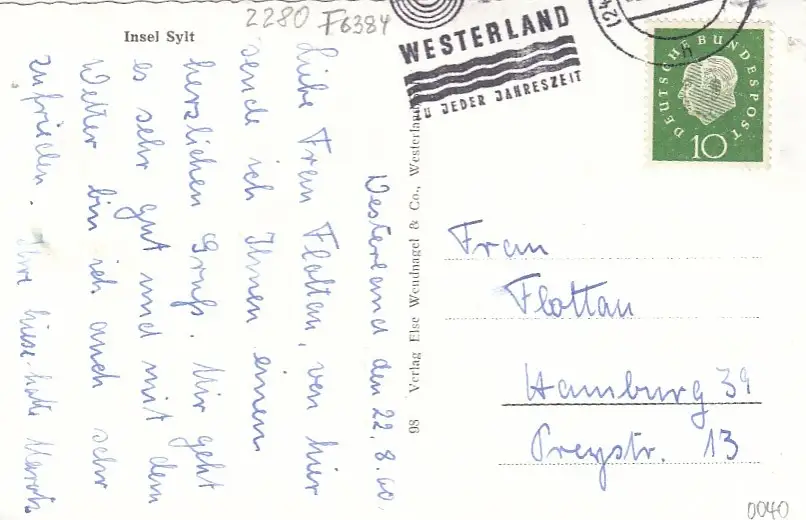 2280 F6384
Insel Sylt
WESTERLAND
ZU JEDER JAHRESZEIT
DEUTSCHE BUNDESPOST
10
98 Verlag Else Wendnagel & Co., Westerland
Westerland, den 22.8.60.
Liebe Frau Flottau, von hier
sende ich Ihnen einen
herzlichen Gruß. Mir geht
es sehr gut und mit dem
Wetter bin ich auch sehr
zufrieden. Ihre
Frau
Flottau
Hamburg 39
Preystr. 13
0040